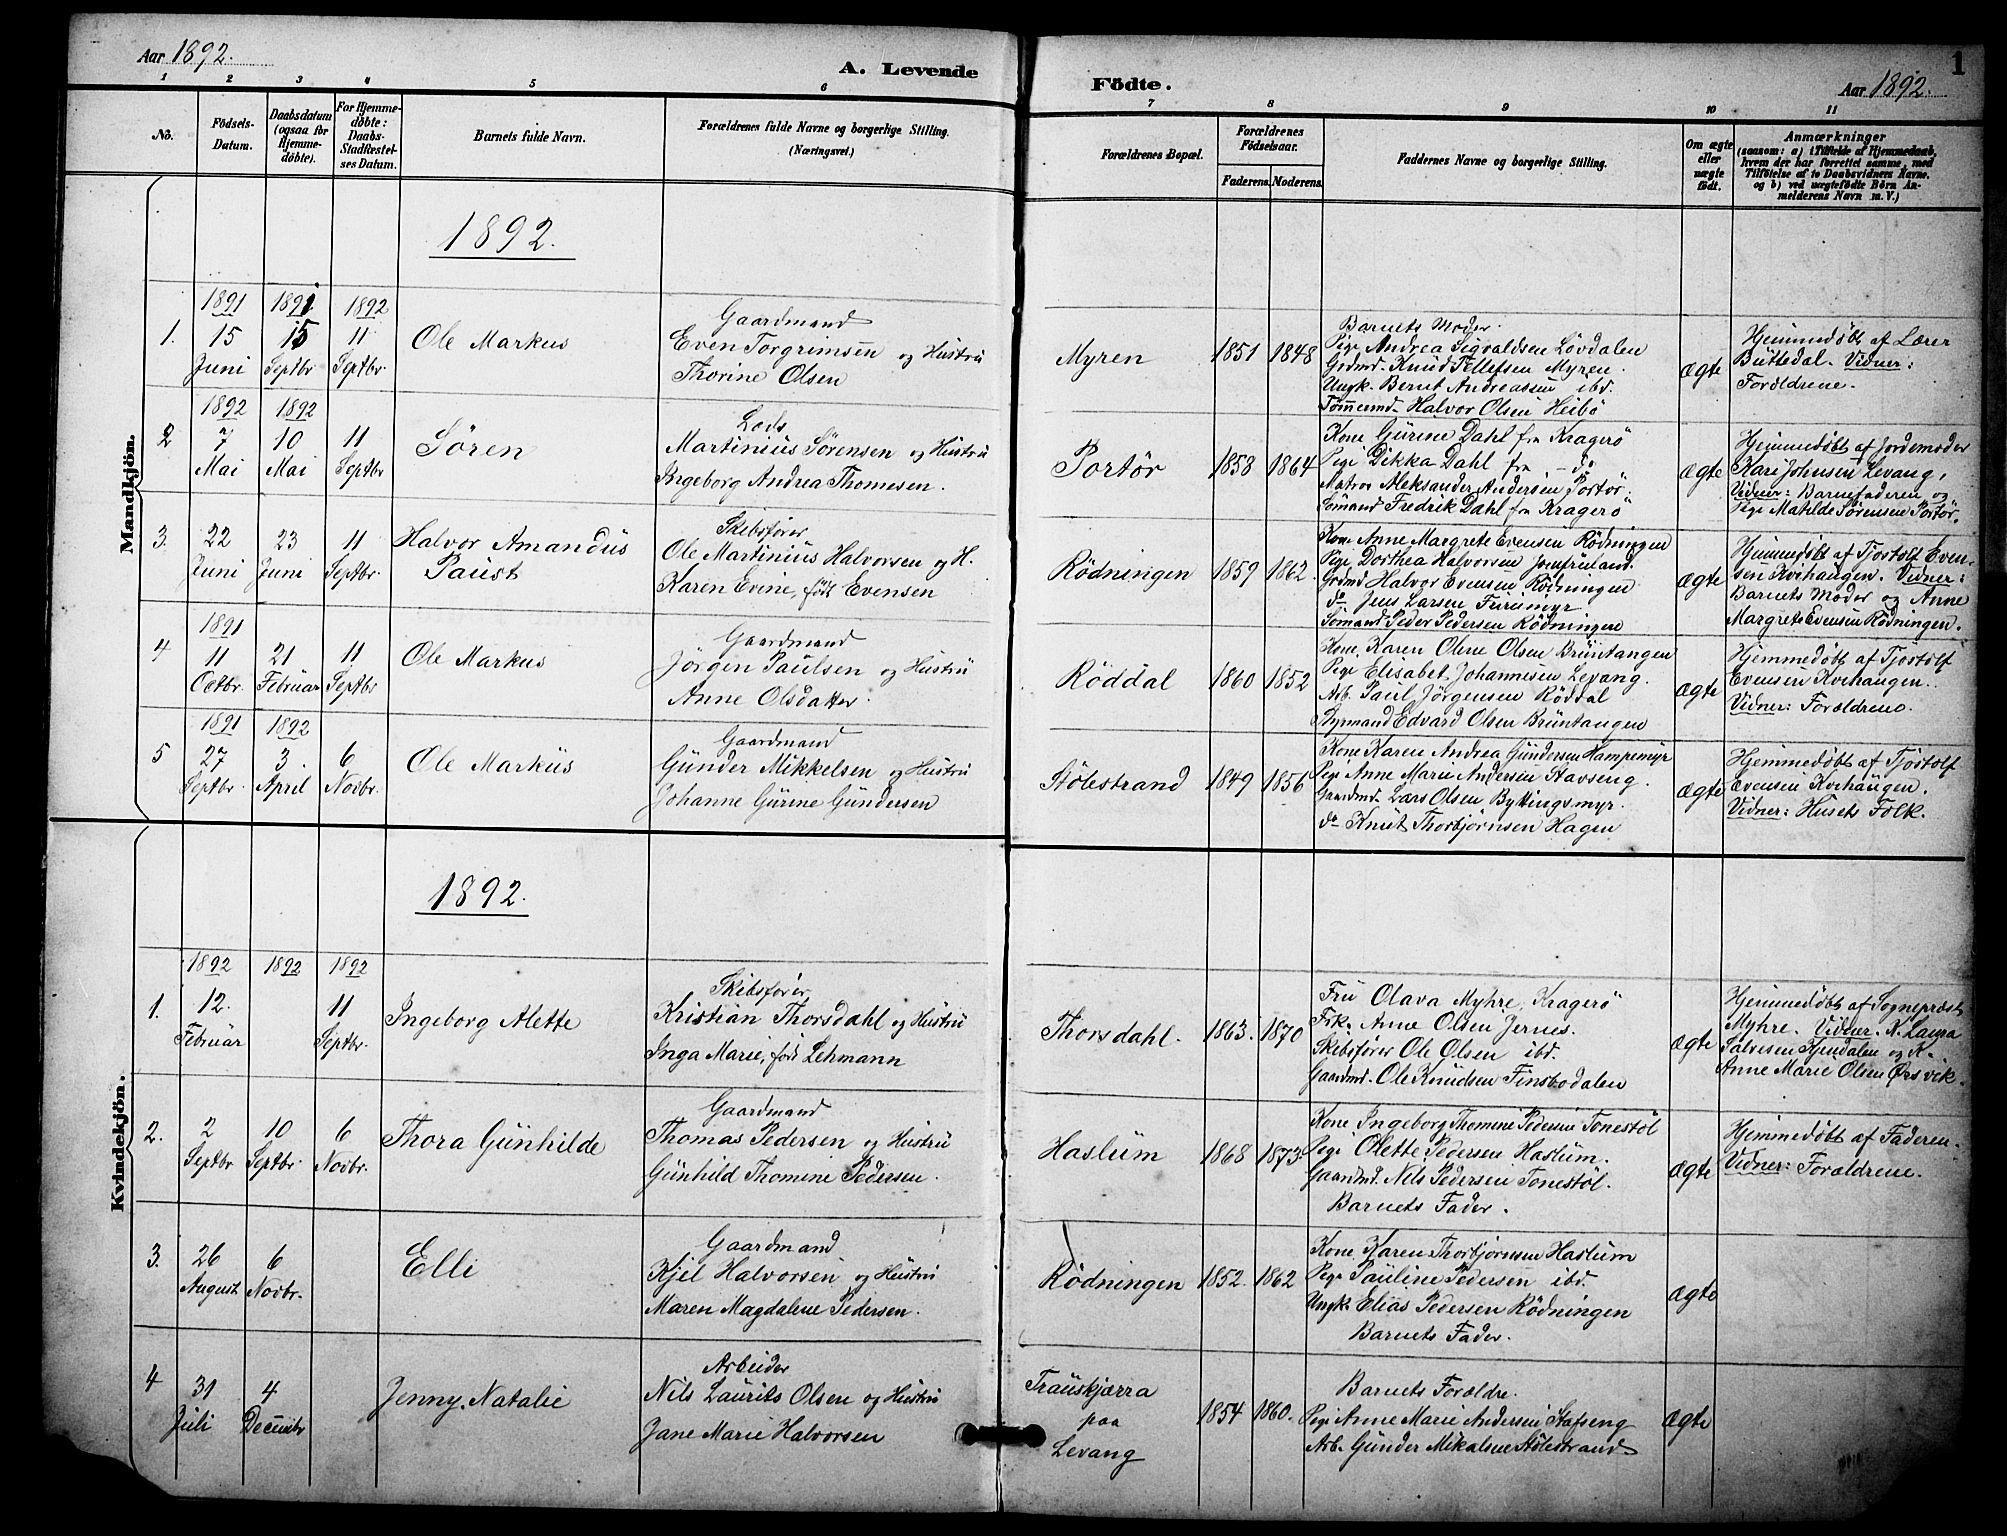 Aar 1892.
A. Levende
Födte.
Aar 1892.
1
1 2 3 4 5 6 7 8 9 10 11
No.
Födsels-
Datum.
Daabsdatum
(ogsaa for
Hjemme-
döbte).
For Hjemme-
döbte:
Daabs-
Stadfæstel-
ses Datum.
Barnets fulde Navn.
Forældrenes fulde Navne og borgerlige Stilling.
(Næringsvei.)
Forældrenes Bopæl.
Forældrenes
Födselsaar.
Faderens. Moderens.
Faddernes Navne og borgerlige Stilling.
Om ægte
eller
uægte
födt.
Anmærkninger
(saasom: a) i Tilfælde af Hjemmedaab,
hvem der har forrettet samme, med
Tilföielse af to Daabsvidners Navne,
og b) ved uægtefödte Börn An-
melderens Navn m. V.)
Mandkjön.
1892.
1.
1891
15
Juni
1891
15
Septbr
1892
11
Septbr.
Ole Markus
Gaardmand
Even Torgrimsen og Hustru
Thorine Olsen
Myren
1851
1848
Barnets Moder.
Pige Andrea Sigvaldsen Lövdalen
Grdmd. Knud Tellefsen Myren.
Ungk. Bernt Andreassen ibd.
Tömmermd. Halvor Olsen Heibö
Ægte
Hjemmedöbt af Lærer
Buttedal. Vidner:
Forældrene.
2
1892
7
Mai
1892
10
Mai
11
Septbr
Sören
Lods
Martinius Sörensen og Hustru
Ingeborg Andrea Thomesen.
Portör
1858
1864
Kone Gurine Dahl fra Kragerö
Pige Dikka Dahl fra - do
Matros Aleksander Andersen Portör.
Sömand Fredrik Dahl fra Kragerö
Ægte
Hjemmedöbt af Jordemoder
Kari Johnsen Levang,
Vidner: Barnefaderen og
Pige Matilde Sörensen Portör.
3.
22
Juni
23
Juni
11
Septbr.
Halvor Amandus
Paust
Skibsförer
Ole Martinius Halvorsen og H.
Karen Evine, født Evensen
Rödningen
1859
1862.
Kone Anne Margrete Evensen Rödningen
Pige Dorthea Halvorsen Jomfruland.
Grdmd Halvor Evensen Rödningen
do Jens Larsen Furumyr
Sömand Peder Pedersen Rödningen
Ægte
Hjemmedöbt af Tjostolf Even-
sen Kvihaugen. Vidner:
Barnets Moder og Anne
Margrete Evensen Rödningen.
4
1891
11
Octbr.
21
Februar
11
Septbr
Ole Markus
Gaardmand
Jörgen Paulsen og Hustru
Anne Olsdatter.
Röddal
1860
1852
Kone Karen Oline Olsen Bruntangen
Pige Elisabet Johannesen Levang.
Arb. Paul Jörgensen Röddal
Styrmand Edvard Olsen Bruntangen
Ægte
Hjemmedöbt af Tjostolf
Evensen Kvihaugen.
Vidner: Forældrene.
5
1891
27
Septbr.
1892
3.
April
6
Novbr.
Ole Markus
Gaardmand
Gunder Mikkelsen og Hustru
Johanne Gurine Gundersen
Stölestrand
1849
1856
Kone Karen Andrea Gundersen Hampemyr
Pige Anne Marie Andersen Stavseng.
Gaardmd. Lars Olsen Byttingsmyr.
do Knut Thorbjörnsen Hagen
Ægte
Hjemmedöbt af Tjostolf
Evensen Kvihaugen.
Vidner: Husets Folk.
Kvindekjön.
1892.
1.
1892
12.
Februar
1892
1892
11
Septbr.
Ingeborg Alette
Skibsfører
Kristian Thorsdahl og Hustru
Inga Marie, født Lehmann
Thorsdahl.
1863.
1870
Fru Olava Myhre, Kragerö
Frk. Anne Olsen Jernes.
Skibsförer Ole Olsen ibd.
Gaardmd. Ole Knudsen Finsbodalen
Ægte
Hjemmedöbt af Sognepræst
Myhre. Vidner: K. Laura
Salvesen Hjendalen og K.
Anne Marie Olsen Ørsvik.
2.
2
Septbr
10
Septbr.
6
Novbr.
Thora Gunhilde
Gaardmand
Thomas Pedersen og Hustru
Gunhild Thomine Pedersen.
Haslum
1868
1873.
Kone Ingeborg Thomine Pedersen Tonestöl
Pige Olette Pedersen Haslum.
Gaardmd. Nils Pedersen Tonestöl.
Barnets Fader.
Ægte
Hjemmedöbt af Faderen.
Vidner: Forældrene.
3.
26
August
6
Novbr.
Elli
Gaardmand
Kjel Halvorsen og Hustru
Maren Magdalene Pedersen.
Rödningen
1852.
1862
Kone Karen Thorbjörnsen Haslum
Pige Pauline Pedersen ibd.
Ungk. Elias Pedersen Rödningen
Barnets Fader.
Ægte
4
31
Juli
4
Decembr
Jenny Natalie
Arbeider
Nils Laurits Olsen og Hustru
Jane Marie Halvorsen
Trauskjærra
paa
Levang
1854
1860.
Barnets Forældre.
Pige Anne Marie Andersen Stafseng
Arb. Gunder Mikalsen Stölestrand
Ægte